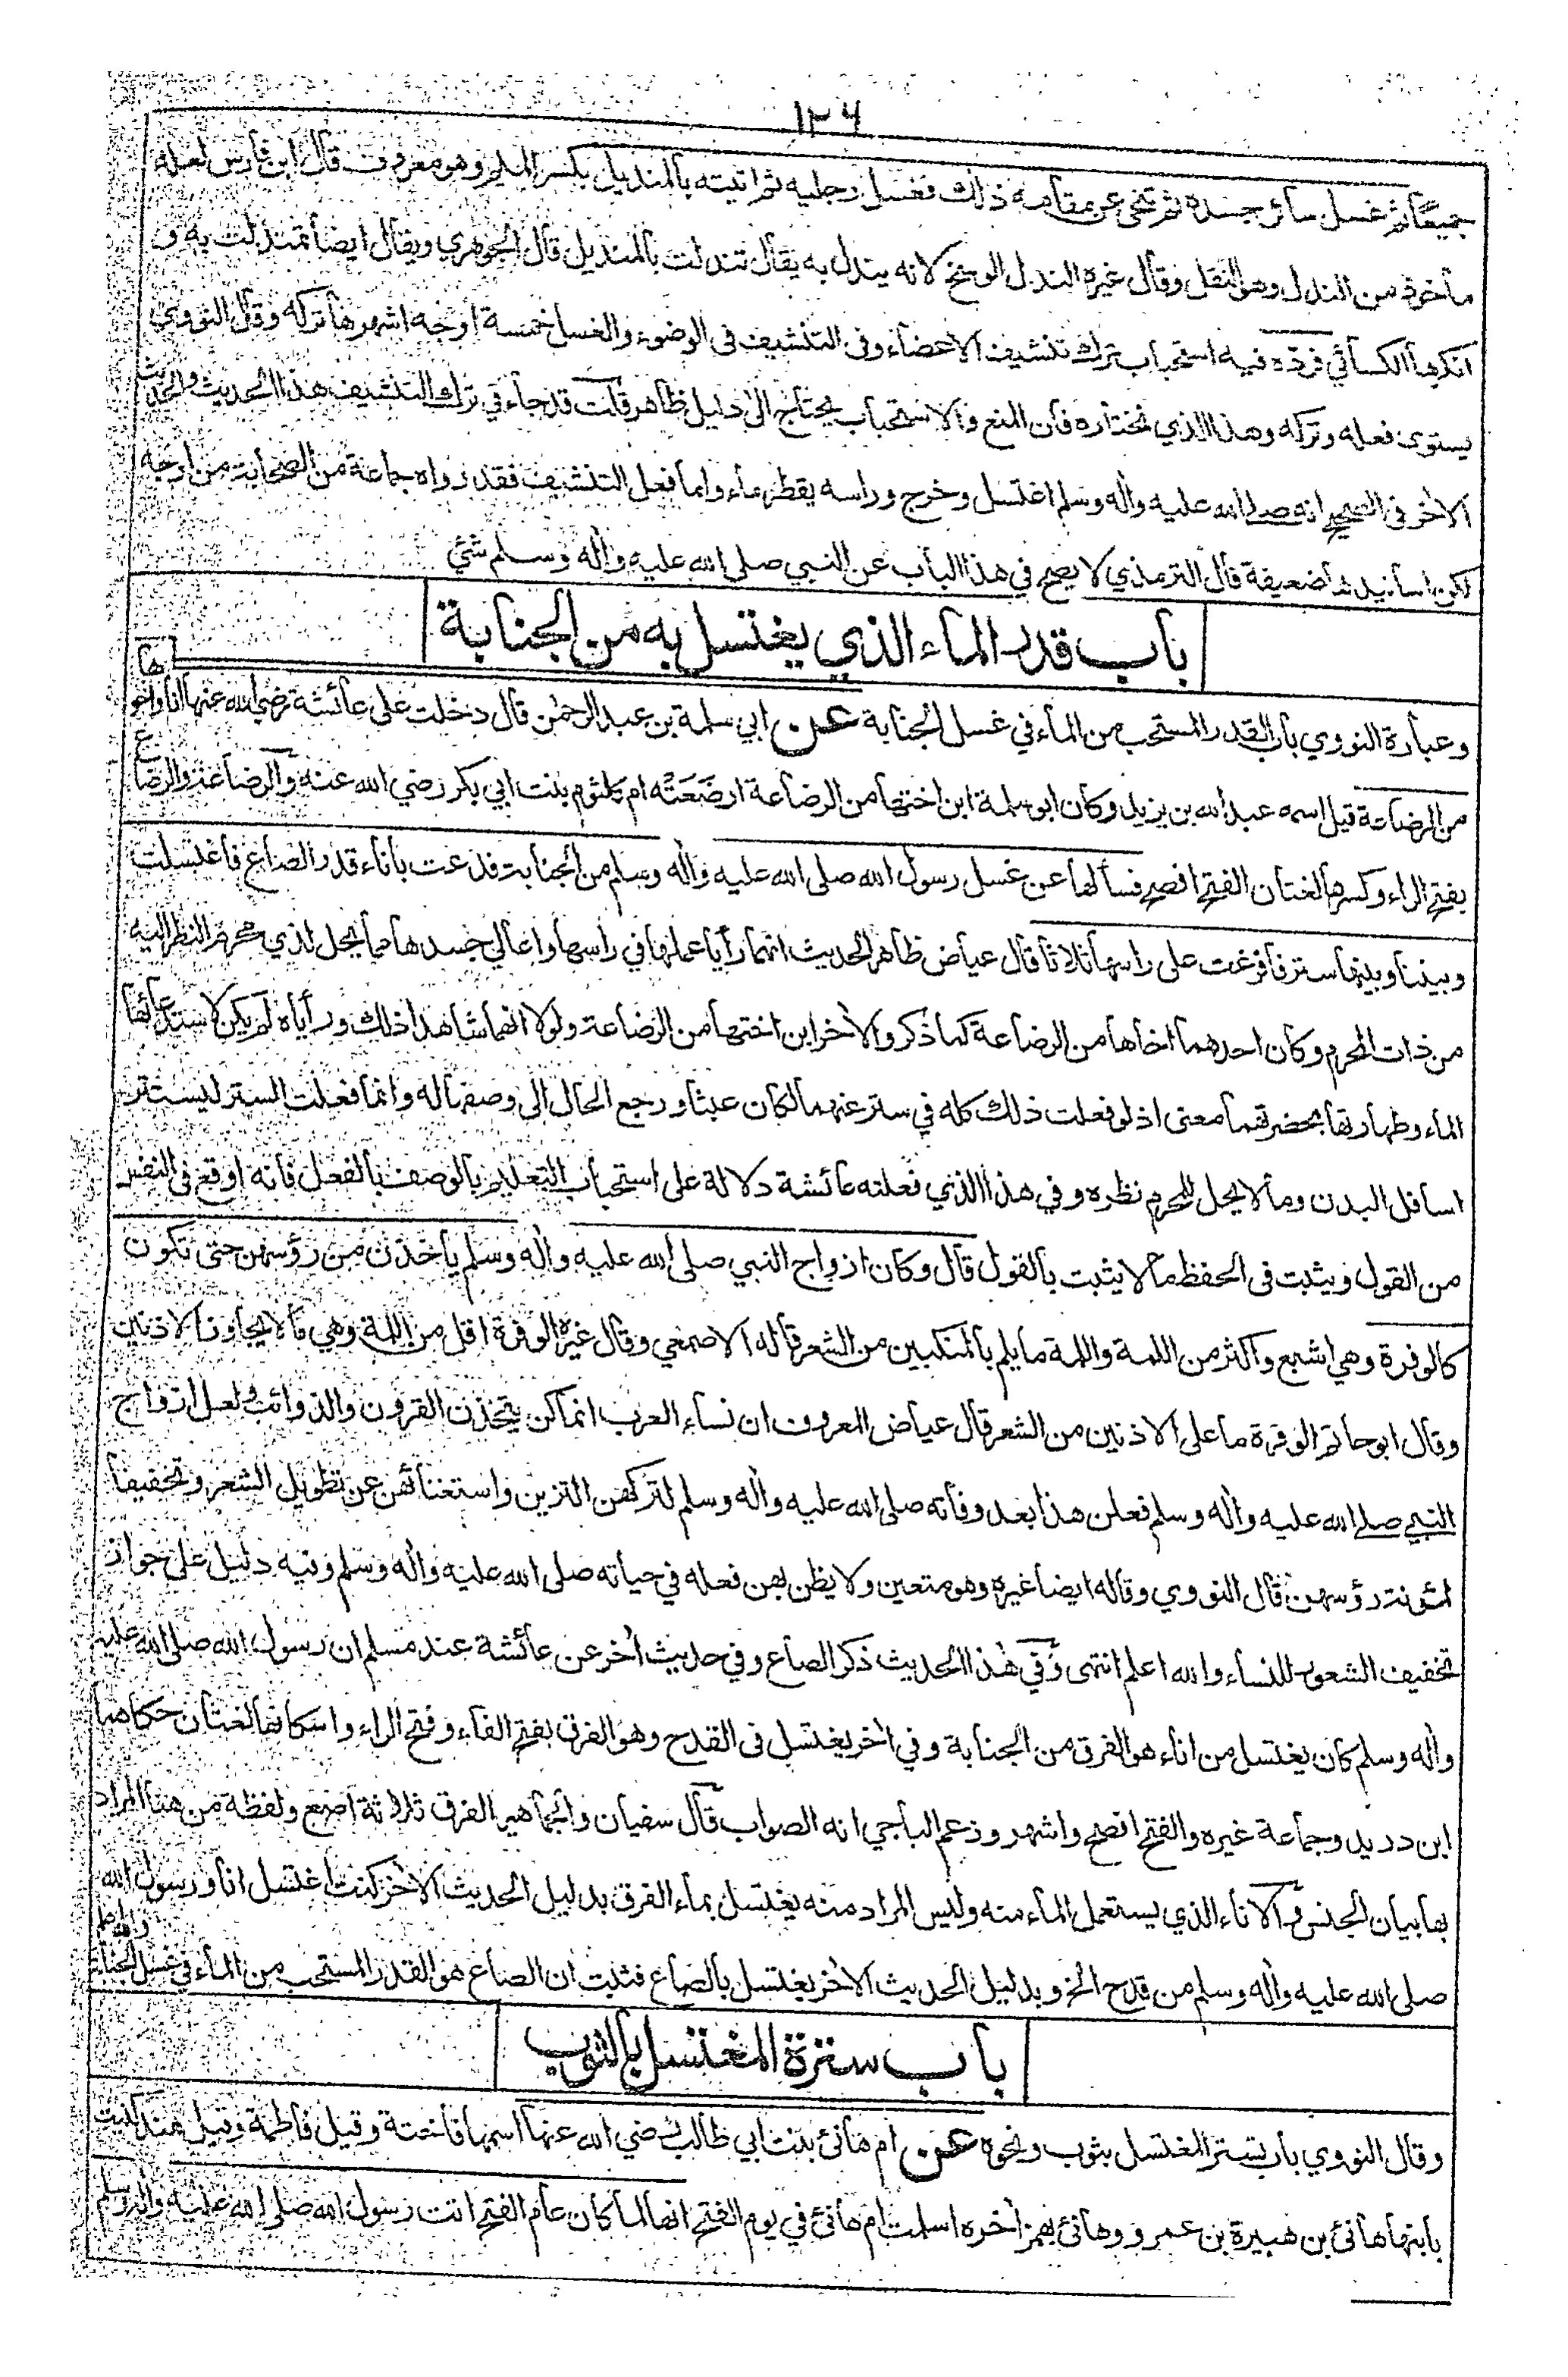 ١٢٦
جميعًا ثم غسل سائر جسده ثم تنحى عن مقامه ذلك فغسل رجليه ثم اتيته بالمنديل بكسر الميم وهو معروف قال ابن فارس لعله
مأخوذ من الندل وهو النقل وقال غيره الندل الوسخ لانه يندل به يقال تندلت بالمنديل قال الجوهري ويقال ايضا تمندلت به و
انكرها الكسائي فرده فيه استحباب ترك تنشيف الاعضاء وفى التنشيف فى الوضوء والغسل خمسة اوجه اشهرها تركه وقال النووي
يستوى فعله وتركه وهذا الذي نختاره فان المنع والاستحباب يحتاج الى دليل ظاهر قلت قد جاء في ترك التنشيف هذا الحديث والحديث
الآخر فى الصحيح انه صلى الله عليه واٰله وسلم اغتسل وخرج وراسه يقطر ماء واما فعل التنشيف فقد رواه جماعة من الصحابة من اوجه
لكن اسانيدها ضعيفة قال الترمذي لا يصح في هذا الباب عن النبي صلى الله عليه واٰله وسلم شئ
باب قدر الماء الذي يغتسل به من الجنابة
وعبارة النووي باب القدر المستحب من الماء في غسل الجنابة عن ابي سلمة بن عبد الرحمٰن قال دخلت على عائشة رضي الله عنها انا واخوها
من الرضاعة قيل اسمه عبد الله بن يزيد وكان ابو سلمة ابن اختها من الرضاعة ارضَعَتْه ام كلثوم بنت ابي بكر رضي الله عنه والرضاعة والرضاع
بفتح الراء وكسرها لغتان الفتح افصح فسألها عن غسل رسول الله صلى الله عليه واٰله وسلم من الجنابة فدعت باناء قدر الصاع فاغتسلت
وبيننا وبينها ستر فافرغت على راسها ثلاثا قال عياض ظاهر الحديث انهما رأيا عملها في راسها واعالي جسدها مما يحل لذي محرم النظر اليه
من ذات المحرم وكان احدهما اخاها من الرضاعة كما ذكر والاٰخر ابن اختها من الرضاعة ولولا انهما شاهدا ذلك ورأياه لم يكن لاستدعائها
الماء وطهارتها بحضرتهما معنى اذ لو فعلت ذلك كله في ستر عنهما لكان عبثا ورجع الحال الى وصفها له وانما فعلت الستر ليستتر
اسافل البدن وما لا يحل للمحرم نظره وفي هذا الذي فعلته عائشة دلالة على استحباب التعليم بالوصف بالفعل فانه اوقع فى النفس
من القول ويثبت فى الحفظ ما لا يثبت بالقول قال وكان ازواج النبي صلى الله عليه واٰله وسلم يأخذن من رؤسهن حتى تكون
كالوفرة وهي اشبع واكثر من اللمة واللمة ما يلم بالمنكبين من الشعر قاله الاصمعي وقال غيره الوفرة اقل من اللمة وهي ما لا يجاوز الاذنين
وقال ابو حاتم الوفرة ما على الاذنين من الشعر قال عياض المعروف ان نساء العرب انما كن يتخذن القرون والذوائب ولعل ازواج
النبي صلى الله عليه واٰله وسلم فعلن هذا بعد وفاته صلى الله عليه واٰله وسلم لتركهن التزين واستغنائهن عن تطويل الشعر وتخفيفا
لمؤنة رؤسهن قال النووي وقاله ايضا غيره وهو متعين ولا يظن بهن فعله في حياته صلى الله عليه واٰله وسلم وفيه دليل على جواز
تخفيف الشعور للنساء والله اعلم انتهى وفي هٰذا الحديث ذكر الصاع وفي حديث اٰخر عن عائشة عند مسلم ان رسول الله صلى الله عليه
واٰله وسلم كان يغتسل من اناء هو الفرق من الجنابة وفي اٰخر يغتسل فى القدح وهو الفرق بفتح الفاء وفتح الراء واسكانها لغتان حكاهما
ابن دريد وجماعة غيره والفتح افصح واشهر وزعم الباجي انه الصواب قال سفيان والجماهير الفرق ثلاثة اصع ولفظة من هنا المراد
بها بيان الجنس والاناء الذي يستعمل الماء منه وليس المراد منه يغتسل بماء الفرق بدليل الحديث الاٰخر كنت اغتسل انا ورسول الله
صلى الله عليه واٰله وسلم من قدح الخ وبدليل الحديث الاٰخر يغتسل بالصاع فثبت ان الصاع هو القدر المستحب من الماء في غسل الجنابة
باب سترة المغتسل بالثوب
وقال النووي باب تستر المغتسل بثوب ونحوه عن ام هانئ بنت ابي طالب رضي الله عنها اسمها فاختة وقيل فاطمة وقيل هند كنيت
بابنها هانئ بن هبيرة بن عمرو وهانئ بهمز اٰخره اسلمت ام هانئ في يوم الفتح انها لما كان عام الفتح اتت رسول الله صلى الله عليه واٰله وسلم